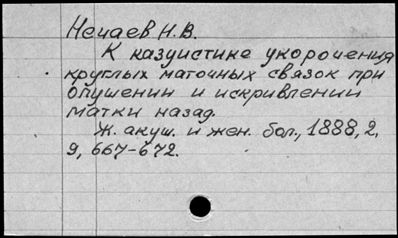 Нечаев Н.В.
К казуистике укорочения
круглых маточных связок при
опущении и искривлении
матки назад.
Ж. акуш. и жен. бол., 1888, 2,
9, 667-672.